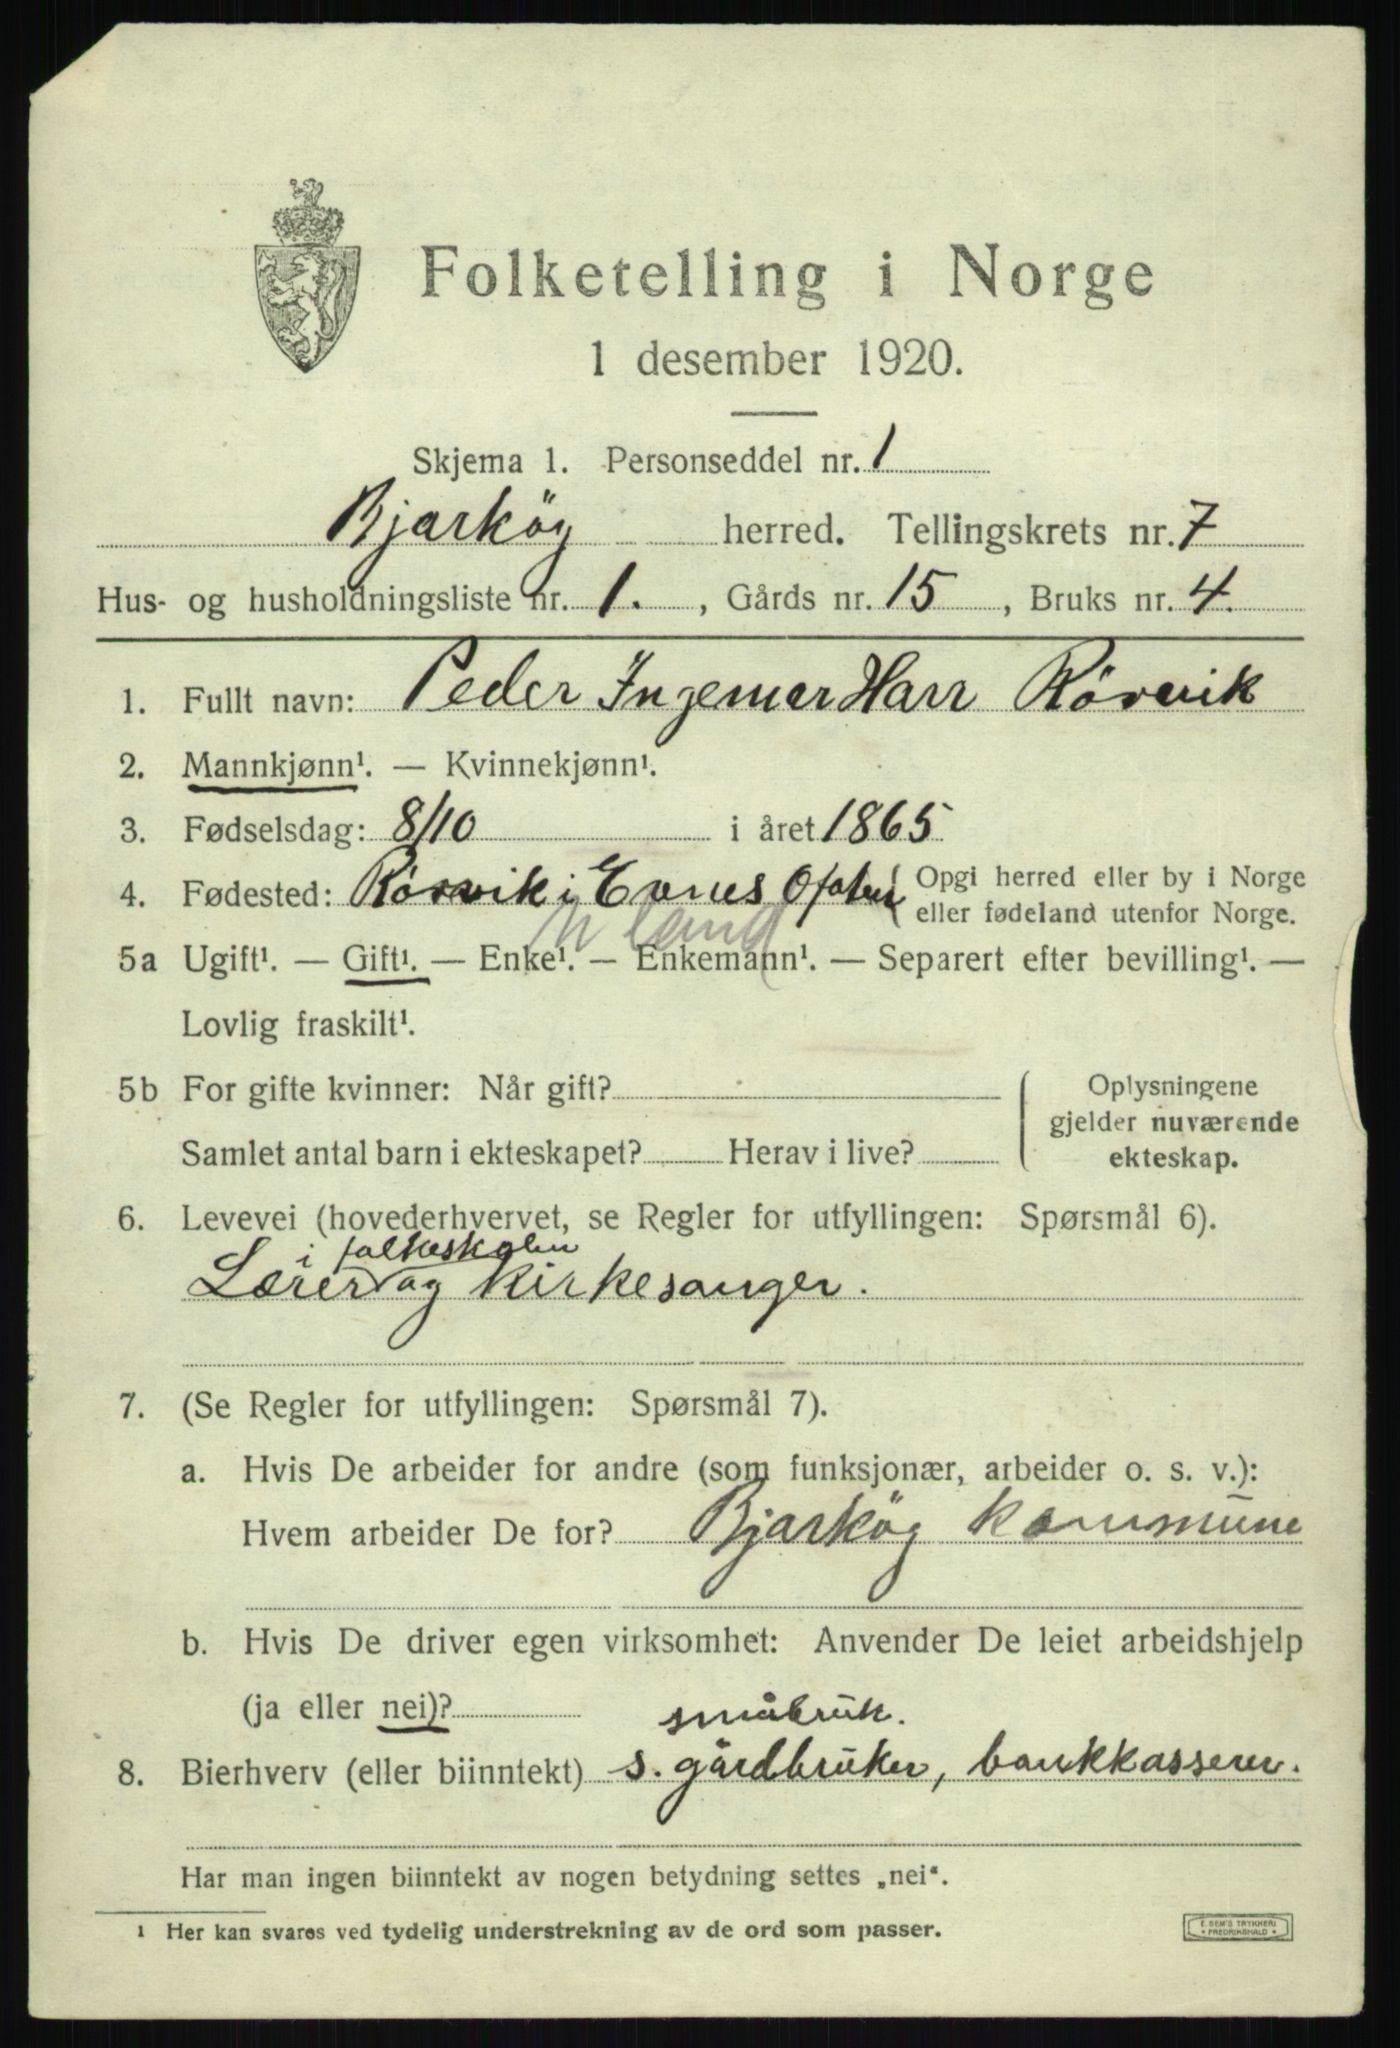 Folketelling i Norge
1 desember 1920.
Skjema 1. Personseddel nr. 1
Bjarköy herred. Tellingskrets nr. 7
Hus- og husholdningsliste nr. 1. , Gårds nr. 15 , Bruks nr. 4.
1. Fullt navn: Peder Ingemar Harr Rörvik
2. Mannkjønn¹. — Kvinnekjønn¹.
3. Fødselsdag: 8/10 i året 1865
4. Fødested: Rörvik i Evenes Ofoten { Opgi herred eller by i Norge
eller fødeland utenfor Norge.
N land
5a Ugift¹. — Gift¹. — Enke¹. — Enkemann¹. — Separert efter bevilling¹. —
Lovlig fraskilt¹.
5b For gifte kvinner: Når gift? Oplysningene
gjelder nuværende
Samlet antal barn i ekteskapet? Herav i live? ekteskap.
6. Levevei (hovederhvervet, se Regler for utfyllingen: Spørsmål 6).
i folkeskolen
Lærer og kirkesanger.
7. (Se Regler for utfyllingen: Spørsmål 7).
a. Hvis De arbeider for andre (som funksjonær, arbeider o. s. v.):
Hvem arbeider De for? Bjarköy kommune
b. Hvis De driver egen virksomhet: Anvender De leiet arbeidshjelp
(ja eller nei)?
småbruk.
8. Bierhverv (eller biinntekt) s. gårdbruker, bankkasserer.
Har man ingen biinntekt av nogen betydning settes „nei“.
¹ Her kan svares ved tydelig understrekning av de ord som passer.
E. SEM'S TRYKKERI
* FREDRIKSHALD *